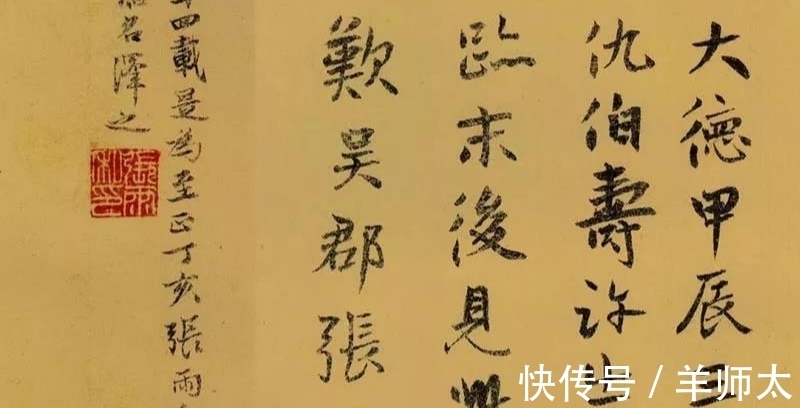 大德甲辰
仇伯壽許
末後見
歎吳郡張
四載是為至正丁亥張雨
名澤之
張雨私印
快传号 / 羊师太